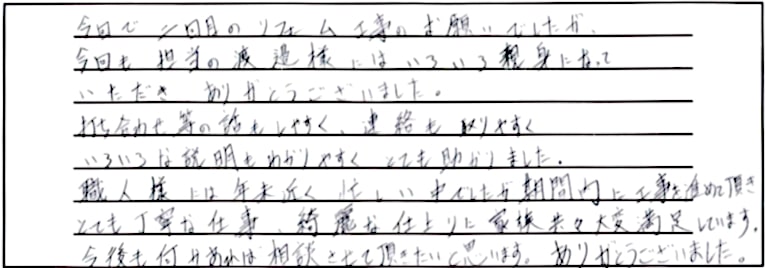 今回で二回目のリフォーム工事のお願いでしたが、
今回も担当の渡邉様にはいろいろ親身になって
いただき ありがとうございました。
打ち合わせ等の話もしやすく、連絡も取りやすく
いろいろな説明もわかりやすく とても助かりました。
職人様には年末近く忙しい中でしたが期間内に工事を進めて頂き
とても丁寧な仕事、綺麗な仕上りに家族共々大変満足しています。
今後も何かあれば相談させて頂きたいと思います。ありがとうございました。